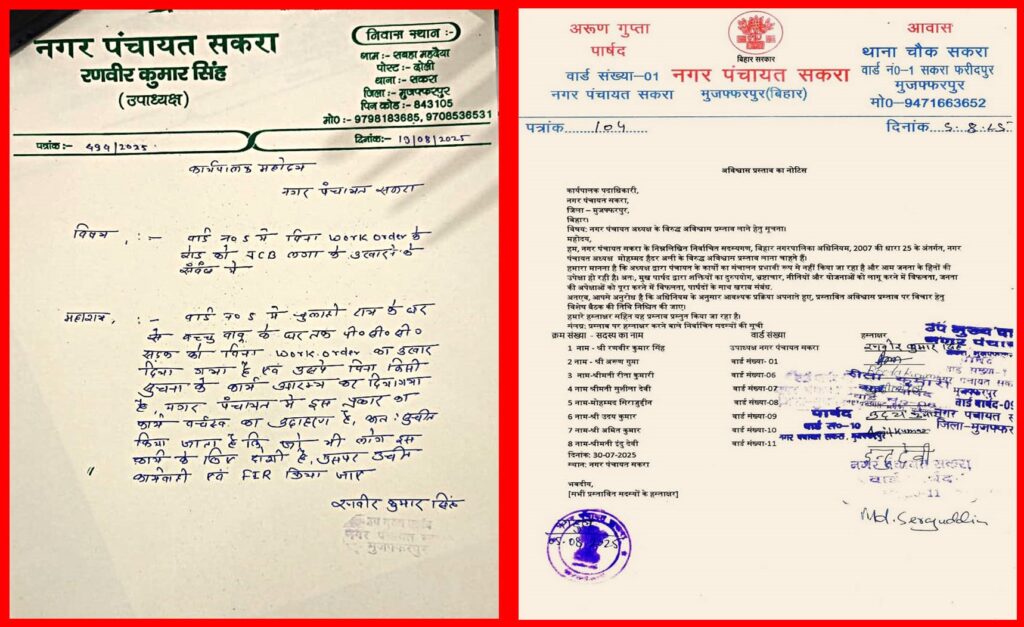 नगर पंचायत सकरा
रणवीर कुमार सिंह
(उपाध्यक्ष)
निवास स्थान :-
नाम :- सबहा मझवैया
पोस्ट :- ढोली
थाना :- सकरा
जिला :- मुजफ्फरपुर
पिन कोड :- 843105
मो० :- 9798183685, 9708536531
पत्रांक :- 494/2025
दिनांक :- 19/08/2025
कार्यपालक महोदय
नगर पंचायत सकरा
विषय :- वार्ड न० 5 मे बिना work order के
रोड को JCB लगा के उखारने के
संबंध मे
महाशय, :- वार्ड न० 5 मे राय के घर
से बच्चु बाबू के घर तक पी० सी० सी०
सड़क को बिना work order का उखार
दिया गया है एवं उसमे बिना किसी
सुचना के कार्य आरम्भ कर दिया गया
है, नगर पंचायत मे इस प्रकार का
कार्य का उदाहरण है, अतः सुचित
किया जाता है कि जो भी लोग इस
कार्य के लिए दोशी है, उसपर उचीत
कार्यवाही एवं FIR किया जाए
रणवीर कुमार सिंह
उप मुख्य पार्षद
नगर पंचायत सकरा
मुजफ्फरपुर
अरूण गुप्ता
पार्षद
वार्ड संख्या-01
नगर पंचायत सकरा
बिहार सरकार
नगर पंचायत सकरा
मुजफ्फरपुर(बिहार)
आवास
थाना चौक सकरा
वार्ड नं0-1 सकरा फरीदपुर
मुजफ्फरपुर
मो0-9471663652
पत्रांक 104
दिनांक 5.8.25
अविश्वास प्रस्ताव का नोटिस
कार्यपालक पदाधिकारी,
नगर पंचायत सकरा,
जिला – मुजफ्फरपुर,
बिहार।
विषय: नगर पंचायत अध्यक्ष के विरुद्ध अविश्वास प्रस्ताव लाने हेतु सूचना।
महोदय,
हम, नगर पंचायत सकरा के निम्नलिखित निर्वाचित सदस्यगण, बिहार नगरपालिका अधिनियम, 2007 की धारा 25 के अंतर्गत, नगर
पंचायत अध्यक्ष मोहम्मद हैदर अली के विरुद्ध अविश्वास प्रस्ताव लाना चाहते हैं।
हमारा मानना है कि अध्यक्ष द्वारा पंचायत के कार्यों का संचालन प्रभावी रूप से नहीं किया जा रहा है और आम जनता के हितों की
उपेक्षा हो रही है। अतः, मुख्य पार्षद द्वारा शक्तियों का दुरुपयोग, भ्रष्टाचार, नीतियों और योजनाओं को लागू करने में विफलता, जनता
की अपेक्षाओं को पूरा करने में विफलता, पार्षदों के साथ खराब संबंध.
अतएव, आपसे अनुरोध है कि अधिनियम के अनुसार आवश्यक प्रक्रिया अपनाते हुए, प्रस्तावित अविश्वास प्रस्ताव पर विचार हेतु
विशेष बैठक की तिथि निश्चित की जाए।
हमारे हस्ताक्षर सहित यह प्रस्ताव प्रस्तुत किया जा रहा है।
संलग्न: प्रस्ताव पर हस्ताक्षर करने वाले निर्वाचित सदस्यों की सूची
क्रम संख्या - सदस्य का नाम वार्ड संख्या हस्ताक्षर
1 नाम - श्री रणवीर कुमार सिंह उपाध्यक्ष नगर पंचायत सकरा रणवीर कुमार सिंह
2 नाम - श्री अरुण गुप्ता वार्ड संख्या- 01
3 नाम-श्रीमती रीता कुमारी वार्ड संख्या-06
4 नाम श्रीमती सुनीता देवी वार्ड संख्या-07
5 नाम-मोहम्मद सिराजुद्दीन वार्ड संख्या-08
6 नाम-श्री उदय कुमार वार्ड संख्या-09
7 नाम-श्री अमित कुमार वार्ड संख्या-10
8 नाम-श्रीमती इंदु देवी वार्ड संख्या-11
दिनांक: 30-07-2025
स्थान: नगर पंचायत सकरा
भवदीय,
[सभी प्रस्तावित सदस्यों के हस्ताक्षर]
पार्षद
वार्ड सं०-10
नगर पंचायत सकरा, मुजफ्फरपुर
इन्दु देवी
नगर पंचायत सकरा
वार्ड पार्षद
Md. Serajuddin
05.08.2025